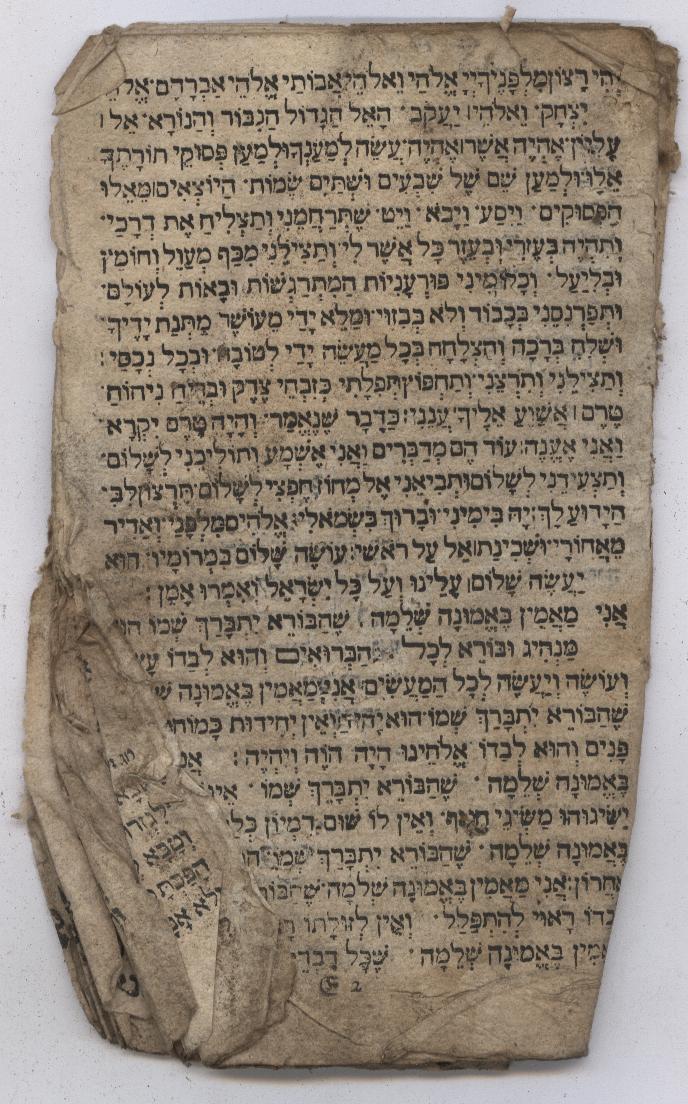 יְהִי רָצוֹן מִלְּפָנֶיךָ יְיָ אֱלֹהַי וֵאלֹהֵי אֲבוֹתַי אֱלֹהֵי אַבְרָהָם אֱלֹהֵי
יִצְחָק וֵאלֹהֵי יַעֲקֹב הָאֵל הַגָּדוֹל הַגִּבּוֹר וְהַנּוֹרָא אֵל
עֶלְיוֹן אֶהְיֶה אֲשֶׁר אֶהְיֶה עֲשֵׂה לְמַעַנְךָ וּלְמַעַן פְּסוּקֵי תוֹרָתֶךָ
אֵלּוּ וּלְמַעַן שֵׁם שֶׁל שִׁבְעִים וּשְׁתַּיִם שֵׁמוֹת הַיּוֹצְאִים מֵאֵלּוּ
הַפְּסוּקִים וַיִּסַּע וַיָּבֹא וַיֵּט שֶׁתְּרַחֲמֵנִי וְתַצְלִיחַ אֶת דְּרָכַי
וְתִהְיֶה בְּעֶזְרִי וּבְעֵזֶר כָּל אֲשֶׁר לִי וְתַצִּילֵנִי מִכַּף מְעַוֵּל וְחוֹמֵץ
וּבְלִיַּעַל וְכָל מִינֵי פּוּרְעָנִיּוֹת הַמִּתְרַגְּשׁוֹת וּבָאוֹת לְעוֹלָם
וּתְפַרְנְסֵנִי בְּכָבוֹד וְלֹא בְּבִזּוּי וּמַלֵּא יָדַי מֵעוֹשֶׁר מַתְּנַת יָדֶיךָ
וּשְׁלַח בְּרָכָה וְהַצְלָחָה בְּכָל מַעֲשֵׂה יָדַי לְטוֹבָה וּבְכָל נְכָסַי :
וְתַצִּילֵנִי וְתִרְצֵנִי וְתַחְפּוֹץ תְּפִלָּתִי כְּזִבְחֵי צֶדֶק וּבְרֵיחַ נִיחוֹחַ
טֶרֶם אֲשַׁוַּע אֵלֶיךָ עֲנֵנִי כַּדָּבָר שֶׁנֶּאֱמַר וְהָיָה טֶרֶם יִקְרָא
וַאֲנִי אֶעֱנֶה עוֹד הֵם מְדַבְּרִים וַאֲנִי אֶשְׁמָע וְתוֹלִיכֵנִי לְשָׁלוֹם
וְתַצְעִידֵנִי לְשָׁלוֹם וּתְבִיאֵנִי אֶל מְחוֹז חֶפְצִי לְשָׁלוֹם תִּרְצוֹן לִבִּי
הַיָּדוּעַ לָךְ יָהּ בִּימִינִי וּבָרוּךְ בִּשְׂמֹאלִי אֱלֹהִים מִלְּפָנַי וְאַדִּיר
מֵאֲחוֹרַי וּשְׁכִינַת אֵל עַל רֹאשִׁי עוֹשֶׂה שָׁלוֹם בִּמְרוֹמָיו הוּא
יַעֲשֶׂה שָׁלוֹם עָלֵינוּ וְעַל כָּל יִשְׂרָאֵל וְאִמְרוּ אָמֵן :
אֲנִי מַאֲמִין בֶּאֱמוּנָה שְׁלֵמָה שֶׁהַבּוֹרֵא יִתְבָּרַךְ שְׁמוֹ הוּא
מַנְהִיג וּבוֹרֵא לְכָל הַבְּרוּאִים וְהוּא לְבַדּוֹ עָשָׂה
וְעוֹשֶׂה וְיַעֲשֶׂה לְכָל הַמַּעֲשִׂים אֲנִי מַאֲמִין בֶּאֱמוּנָה
שֶׁהַבּוֹרֵא יִתְבָּרַךְ שְׁמוֹ הוּא יָחִיד וְאֵין יְחִידוּת כָּמוֹהוּ
פָּנִים וְהוּא לְבַדּוֹ אֱלֹהֵינוּ הָיָה הֹוֶה וְיִהְיֶה : אֲנִי
בֶּאֱמוּנָה שְׁלֵמָה שֶׁהַבּוֹרֵא יִתְבָּרַךְ שְׁמוֹ אֵינוֹ
יַשִּׂיגוּהוּ מַשִּׂיגֵי הַגּוּף וְאֵין לוֹ שׁוּם דִּמְיוֹן כְּלָל
בֶּאֱמוּנָה שְׁלֵמָה שֶׁהַבּוֹרֵא יִתְבָּרַךְ שְׁמוֹ
אַחֲרוֹן אֲנִי מַאֲמִין בֶּאֱמוּנָה שְׁלֵמָה שֶׁהַבּוֹרֵא
לְבַדּוֹ רָאוּי לְהִתְפַּלֵּל וְאֵין לְזוּלָתוֹ
מַאֲמִין בֶּאֱמוּנָה שְׁלֵמָה שֶׁכָּל דִּבְרֵי
2